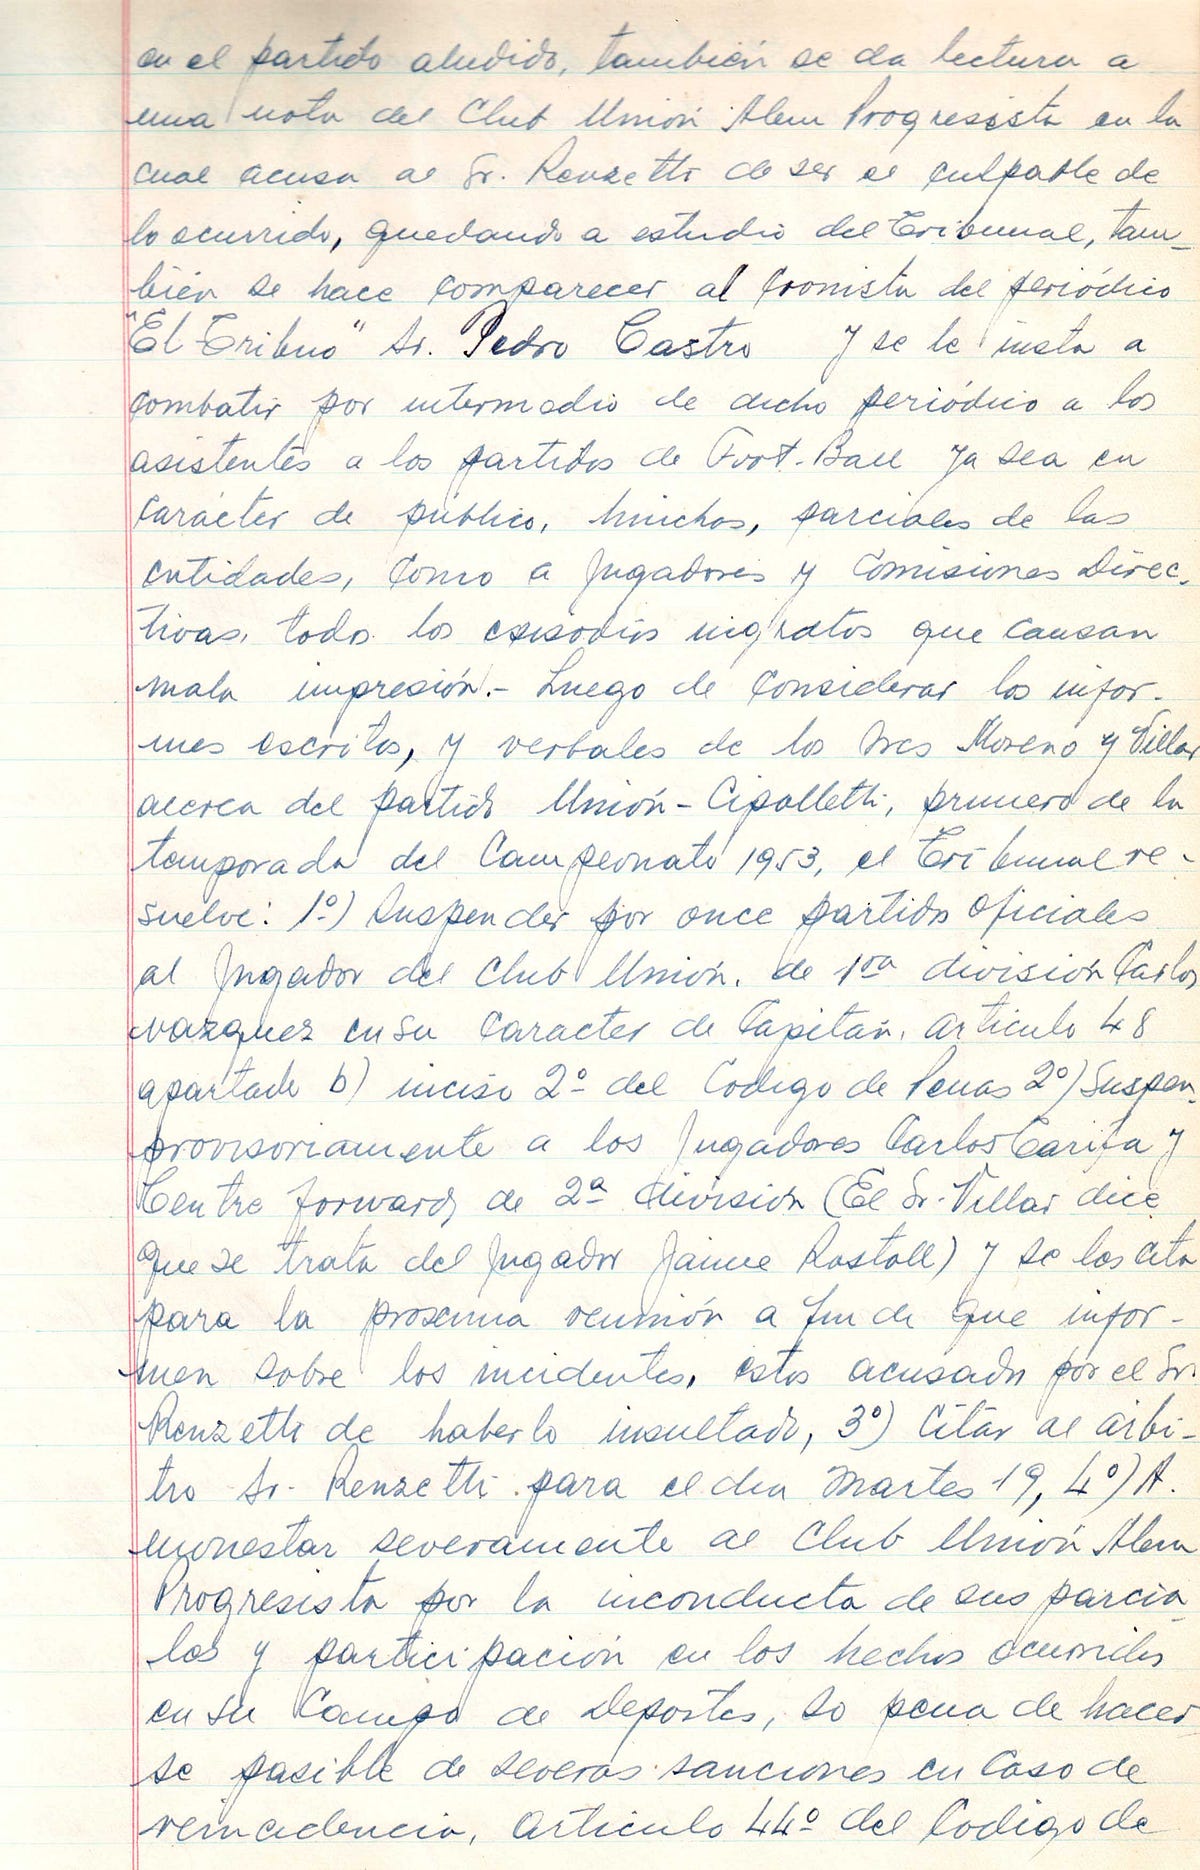 en el partido aludido, también se da lectura a
una nota del Club Unión Alem Progresista en la
cual acusa al Sr. Renzetti de ser el culpable de
lo ocurrido, quedando a estudio del Tribunal, tam-
bién se hace comparecer al Cronista del periódico
"El Tribuno" Sr. Pedro Castro y se le insta a
combatir por intermedio de dicho periódico a los
asistentes a los partidos de Foot-Ball ya sea en
Carácter de público, hinchas, parciales de las
entidades, Como a Jugadores y Comisiones Direc-
tivas, todo los episodios ingratos que Causan
mala impresión.- Luego de Considerar los infor-
mes escritos, y verbales de los Sres Moreno y Villar
acerca del partido Unión-Cipolletti, primero de la
temporada del Campeonato 1953, el Tribunal re-
suelve: 1º) Suspender por once partidos Oficiales
al Jugador del Club Unión, de 1ra división Carlos
Vazquez en su Caracter de Capitán, articulo 48
apartado b) inciso 2º del Codigo de Penas 2º) Suspen-
provisoriamente a los Jugadores Carlos y
Centre forward de 2ª división (El Sr. Villar dice
que se trata del Jugador Jaime Rostoll) y se los cita
para la proxima reunión a fin de que infor-
men sobre los incidentes, estos acusados por el Sr.
Renzetti de haberlo insultado, 3º) Citar al arbi-
tro Sr. Renzetti para el dia Martes 19, 4º) A.
monestar severamente al Club Unión Alem
Progresista por la inconducta de sus parcia
les y participación en los hechos ocurridos
en su Campo de Deportes, so pena de hacer
se pasible de severas sanciones en Caso de
reincidencia, articulo 44º del Codigo de